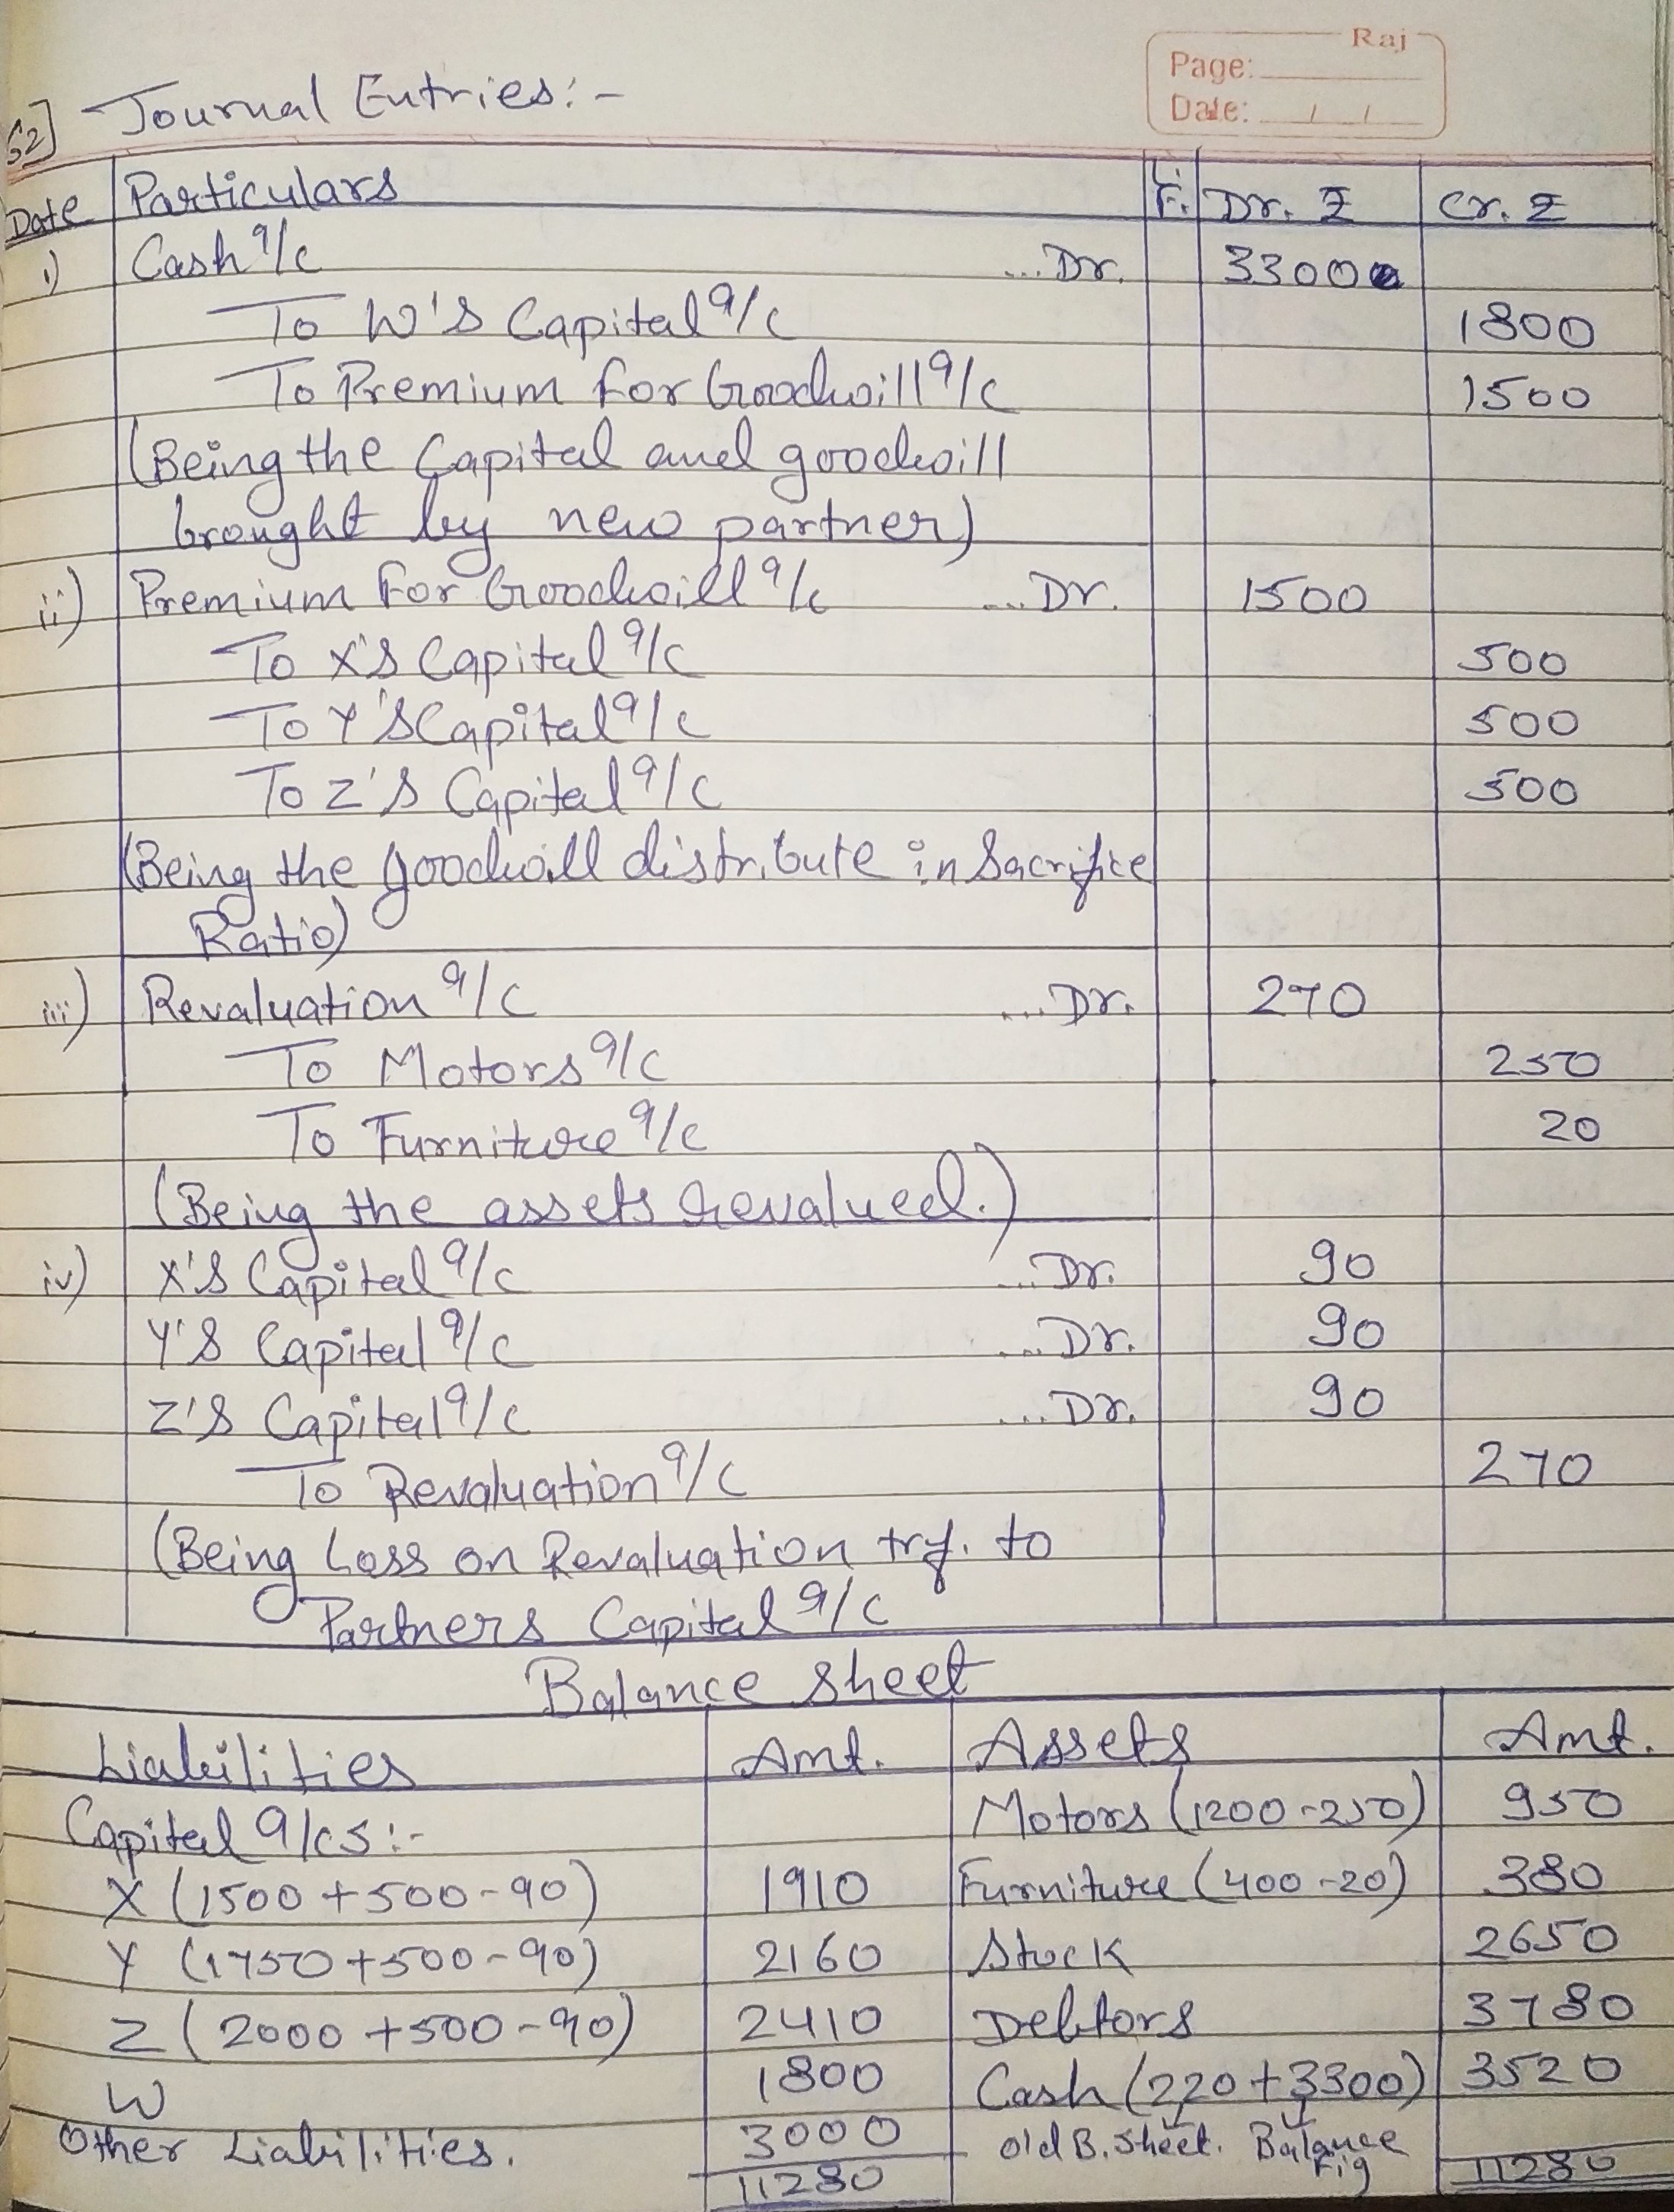 Raj
Page:
Date: / /
52] Journal Entries:-
Date Particulars L.F. Dr. ₹ Cr. ₹
i) Cash a/c ...Dr. 3300
To W's Capital a/c 1800
To Premium for Goodwill a/c 1500
(Being the Capital and goodwill
brought by new partner)
ii) Premium For Goodwill a/c ...Dr. 1500
To X's Capital a/c 500
To Y's Capital a/c 500
To Z's Capital a/c 500
(Being the goodwill distribute in Sacrifice
Ratio)
iii) Revaluation a/c ...Dr. 270
To Motors a/c 250
To Furniture a/c 20
(Being the assets revalued.)
iv) X's Capital a/c ...Dr. 90
Y's Capital a/c ...Dr. 90
Z's Capital a/c ...Dr. 90
To Revaluation a/c 270
(Being Loss on Revaluation trf. to
Partners Capital a/c
Balance Sheet
Liabilities Amt. Assets Amt.
Capital a/cs:- Motors (1200-250) 950
X (1500+500-90) 1910 Furniture (400-20) 380
Y (1750+500-90) 2160 Stock 2650
Z (2000+500-90) 2410 Debtors 3780
W 1800 Cash (220+3300) 3520
Other Liabilities. 3000 Old B. Sheet. Balance Fig
11280 11280